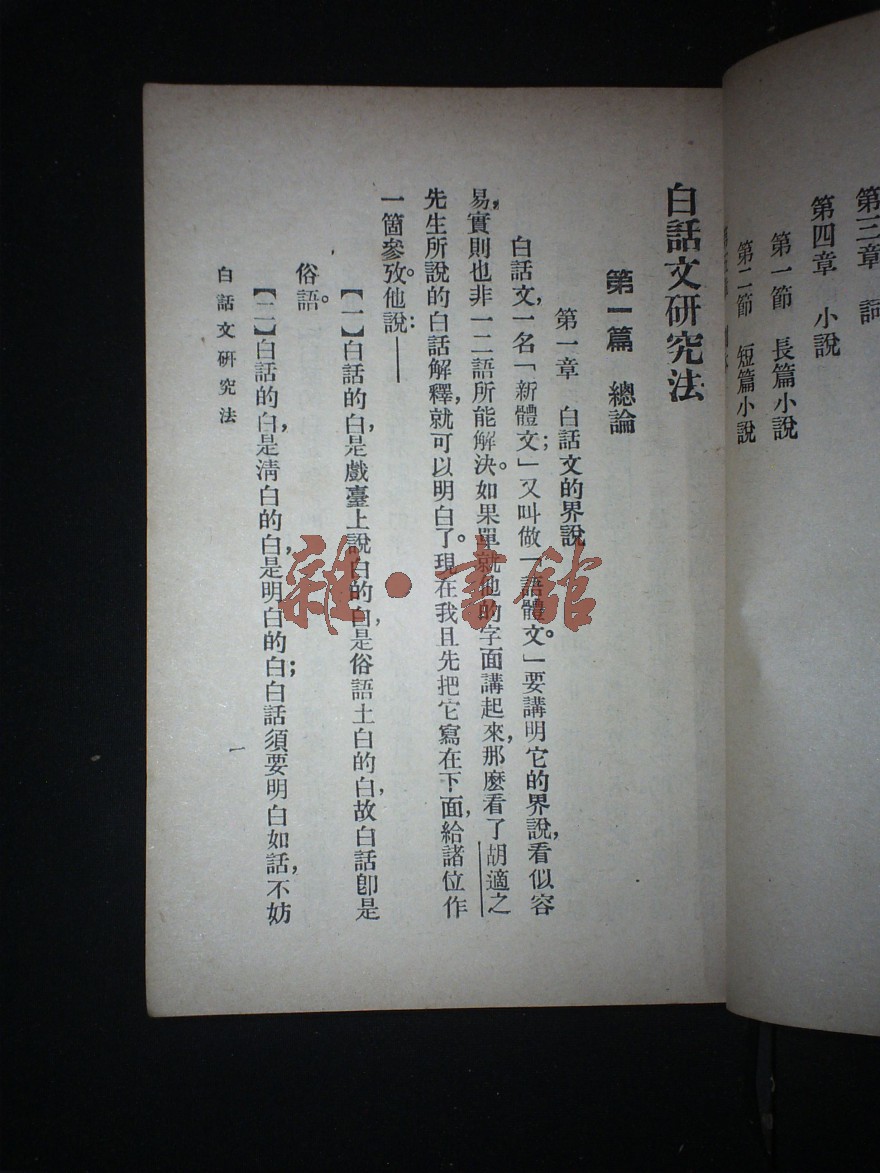 第三章　詞
第四章　小說
第一節　長篇小說
第二節　短篇小說
白話文研究法
第一篇　總論
第一章　白話文的界說
白話文，一名「新體文」；又叫做「語體文。」要講明它的界說，看似容
易，實則也非一二語所能解決。如果單就他的字面講起來，那麼看了胡適之
先生所說的白話解釋，就可以明白了。現在我且先把它寫在下面，給諸位作
一箇參攷。他說：——
【一】白話的白，是戲臺上說白的白，是俗語土白的白，故白話卽是
俗語。
【二】白話的白，是淸白的白，是明白的白；白話須要明白如話，不妨
白話文研究法
一
雜·書館